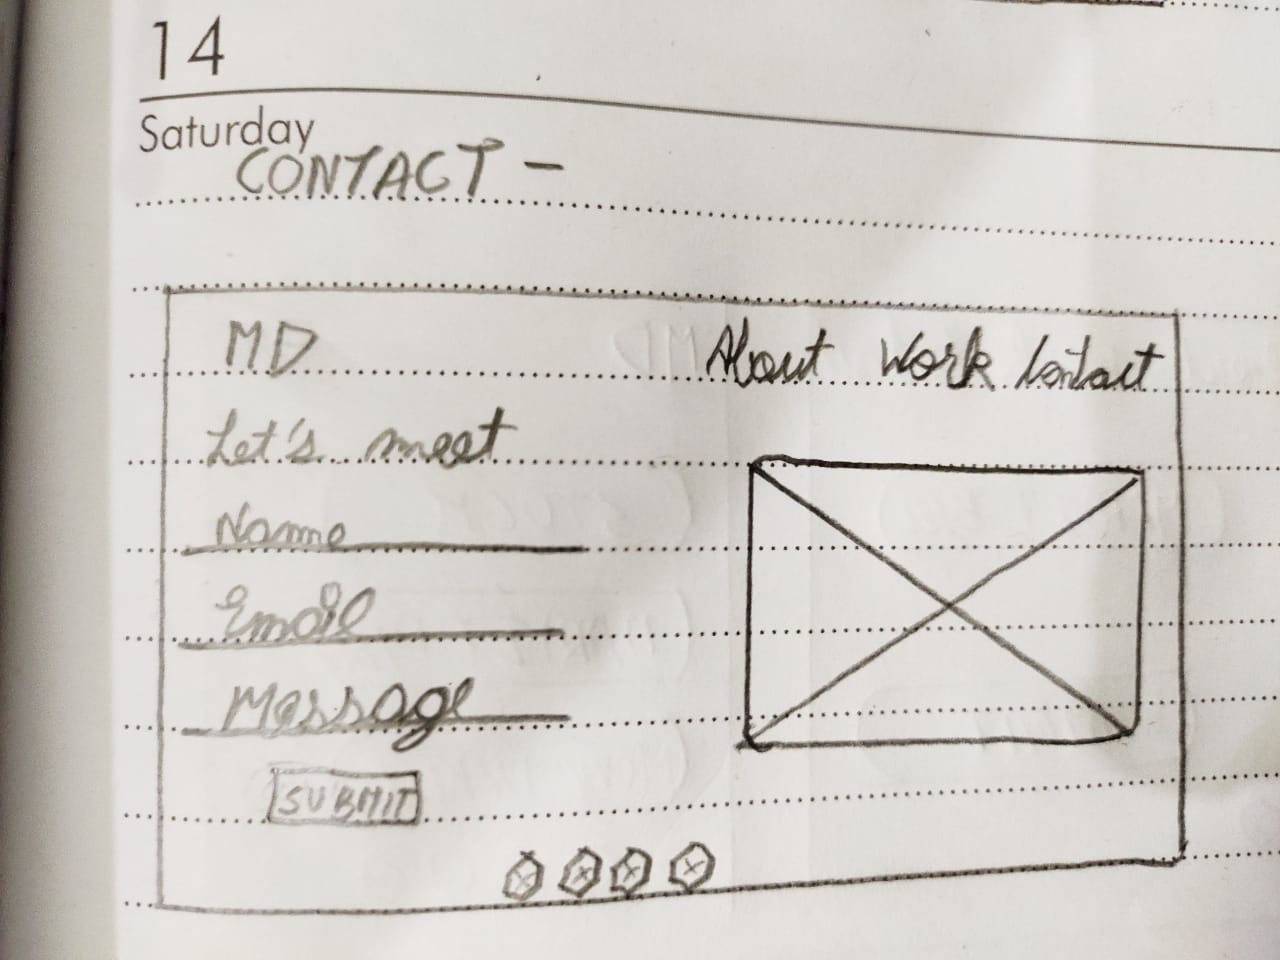 14
Saturday
CONTACT -
MD About Work Contact
Let's meet
Name
Email
Message
SUBMIT